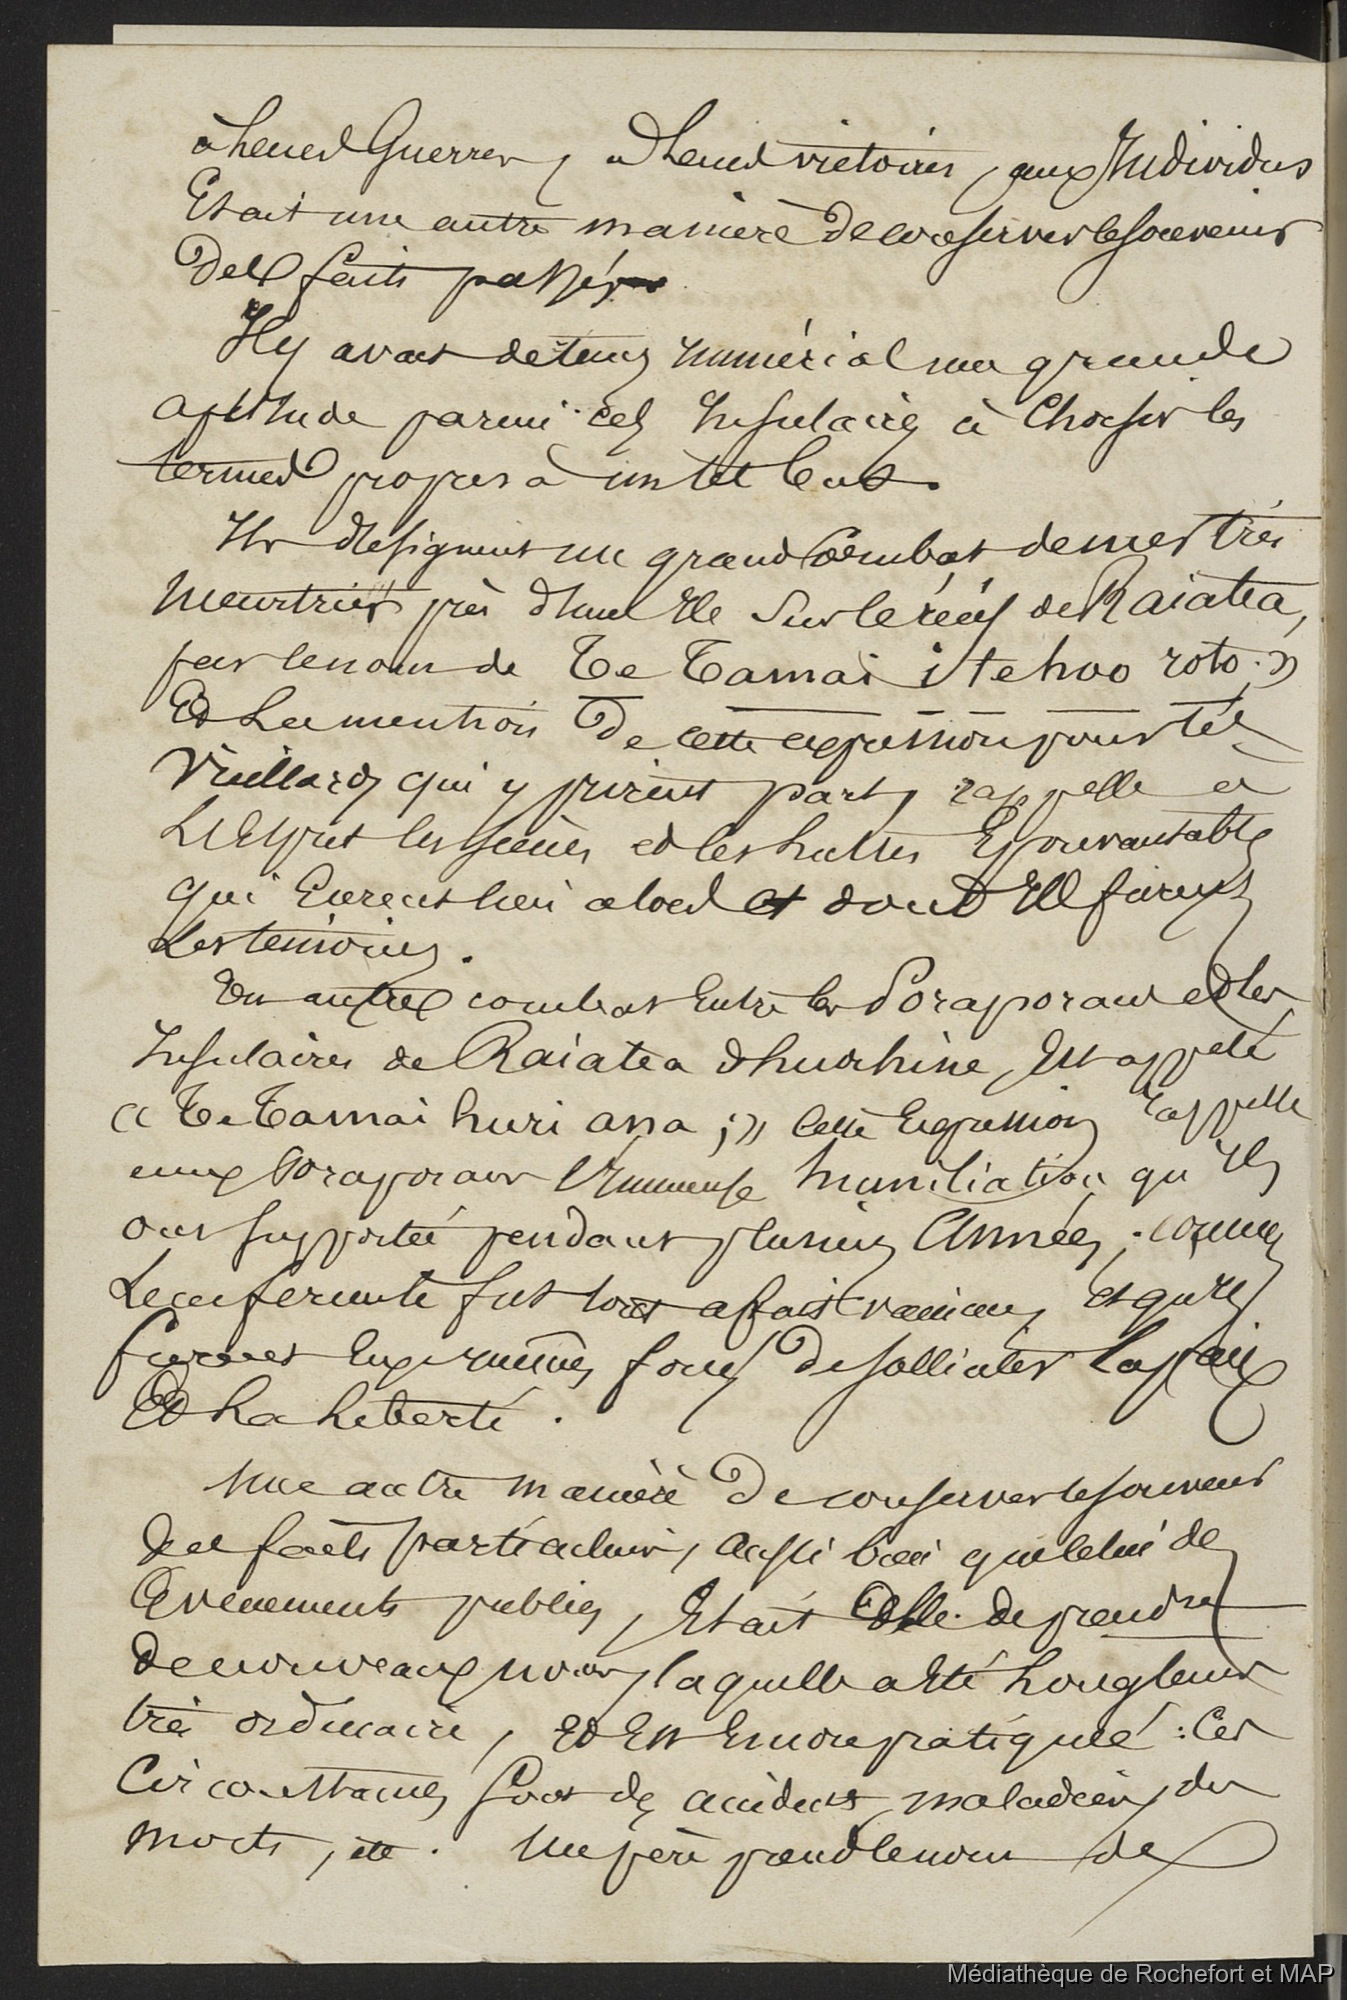 à Leurs Guerres, à Leurs victoires, aux Individus
Etait une autre manière de conserver le souvenir
Des faits passés
Il y avait de temps immémorial une grande
aptitude parmi ces Insulaires à Choisir les
termes propres à un tel but.
Ils désignent un grand Combat de mer très
meurtrier près d'une Ile sur le récif de Raiatea,
par le nom de Te Tamai i te hoo roto ; »
Et La mention De cette expression pour les
Vieillards qui y prirent part, rappelle à
L'Esprit les scènes et les luttes Epouvantables
qui Eurent lieu alors et dont Ils furent
Les témoins.
Un autre combat Entre les Poraporans et les
Insulaires de Raiatea d'huahine, Est appelé
« Te Tamai huri apa ; » Cette Expression rappelle
aux Boraporans l'Immense humiliation qu'Ils
ont supportée pendant plusieurs Années ; comme
Leur fut tout à fait vaincus et qu'ils
furent Eux-mêmes forcés De solliciter La paix
Et La Liberté.
Une autre manière De conserver le souvenir
Des faits particuliers, aussi bien que celui des
Evenements publics, Etait Celle de prendre
De nouveaux noms, laquelle a Eté Longtemps
très ordinaire, Et Est Encore pratiquée : Ces
Circonstances sont des accidents, maladies, des
morts, etc. Un père prend le nom de